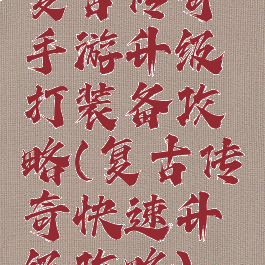 复古传奇
手游升级
打装备攻
略(复古传
奇快速升
级攻略)